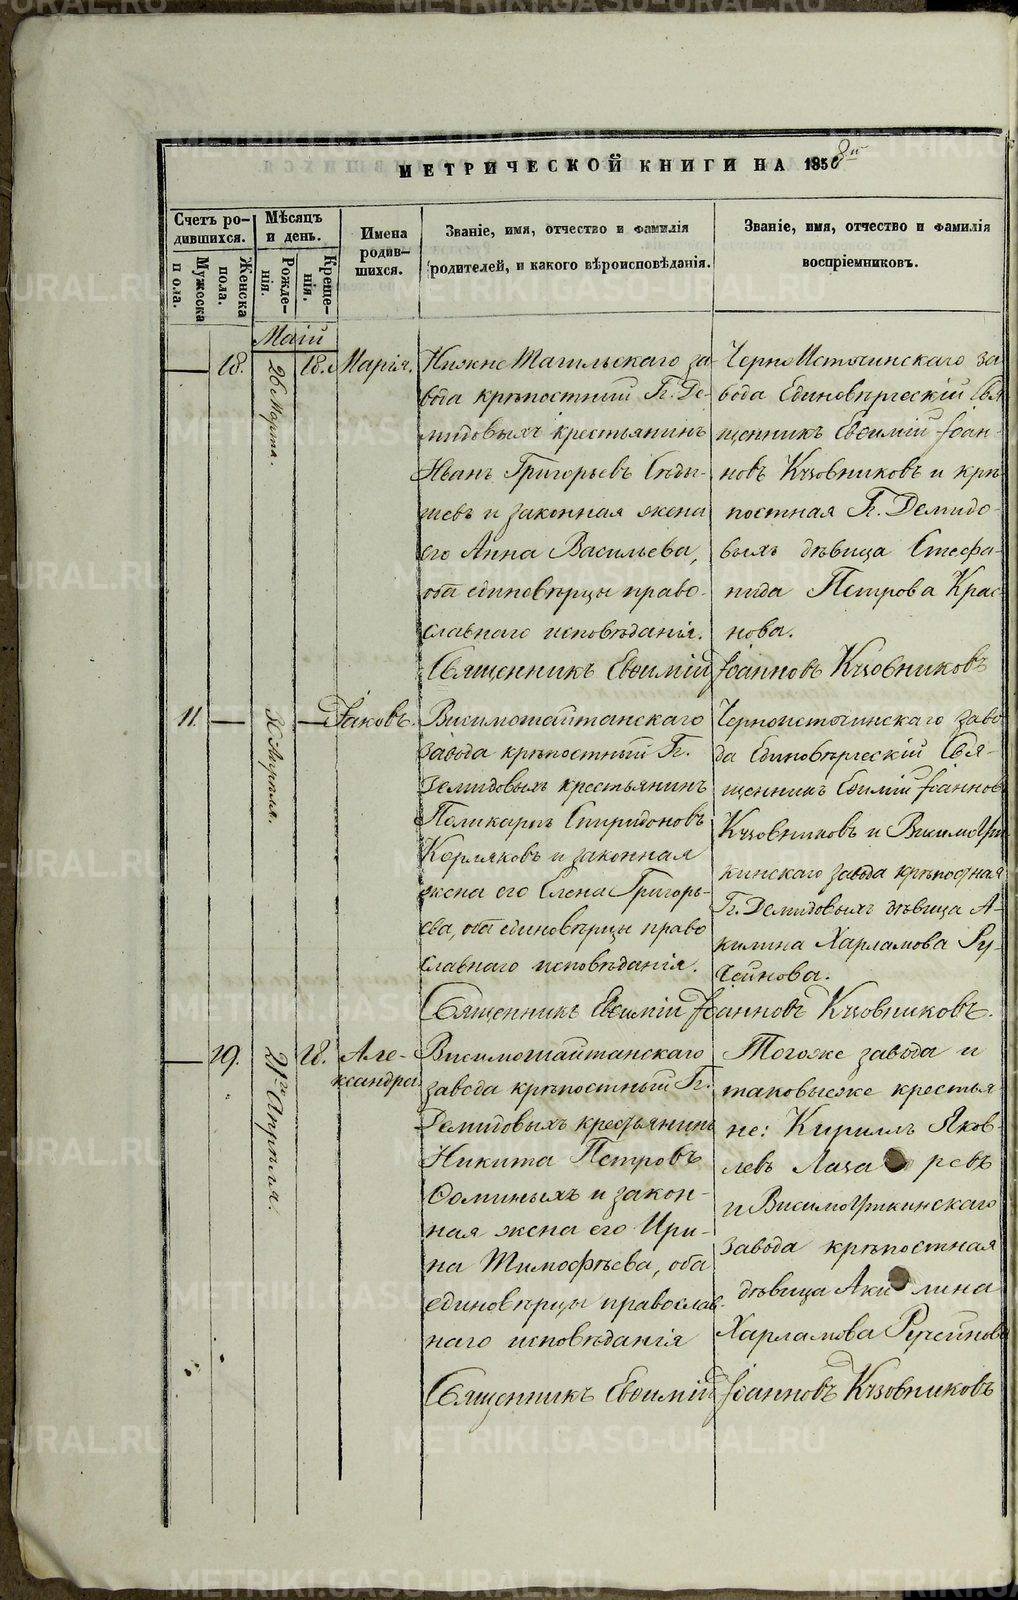 МЕТРИЧЕСКОЙ КНИГИ НА 1858й
Счетъ ро-
дившихся.
Мужеска
пола.
Женска
пола.
Мѣсяцъ
и день.
Рожде-
нія.
Креще-
нія.
Имена
родив-
шихся.
Званіе, имя, отчество и фамилія
родителей, и какого вѣроисповѣданія.
Званіе, имя, отчество и фамилія
воспріемниковъ.
Маій
18.
26 Марта.
18.
Марія.
Нижне Тагильскаго за-
вода крѣпостный Гг. Де-
мидовыхъ крестьянинъ
Иванъ Григорьевъ
и законная жена
его Анна Васильева,
оба единовѣрцы право-
славнаго исповѣданія.
ЧерноИсточинскаго за-
вода Единовѣрческій Свя-
щенникъ Евѳимій Іоан-
новъ Кузовниковъ и крѣ-
постная Гг. Демидо-
выхъ дѣвица Стефа-
нида Петрова Крас-
нова.
Священникъ Евѳимій Іоанновъ Кузовниковъ
11.
30 Апрѣля.
Іаковъ.
Висимошайтанскаго
завода крѣпостный Гг.
Демидовыхъ крестьянинъ
Поликарпъ Спиридоновъ
Корляковъ и законная
жена его Елена Григорь-
ева, оба единовѣрцы право
славнаго исповѣданія.
Черноисточинскаго заво-
да Единовѣрческій Свя-
щенникъ Евѳимій Іоанновъ
Кузовниковъ и ВисимоУт-
кинскаго завода крѣпостная
Гг. Демидовыхъ дѣвица А-
килина Харламова Ру-
чейнова.
Священникъ Евѳимій Іоанновъ Кузовниковъ.
19.
21го Апрѣля.
18.
Але-
ксандра.
Висимошайтанскаго
завода крѣпостный Гг.
Демидовыхъ крестьянинъ
Никита Петровъ
Ѳоминыхъ и закон-
ная жена его Ири-
на Тимофѣева, оба
единовѣрцы православ-
наго исповѣданія
Тогоже завода и
таковыеже крестья-
не: Кириллъ Яков-
левъ Лазаревъ
и ВисимоУткинскаго
завода крѣпостная
дѣвица Акилина
Харламова Ручейнова
Священникъ Евѳимій Іоанновъ Кузовниковъ